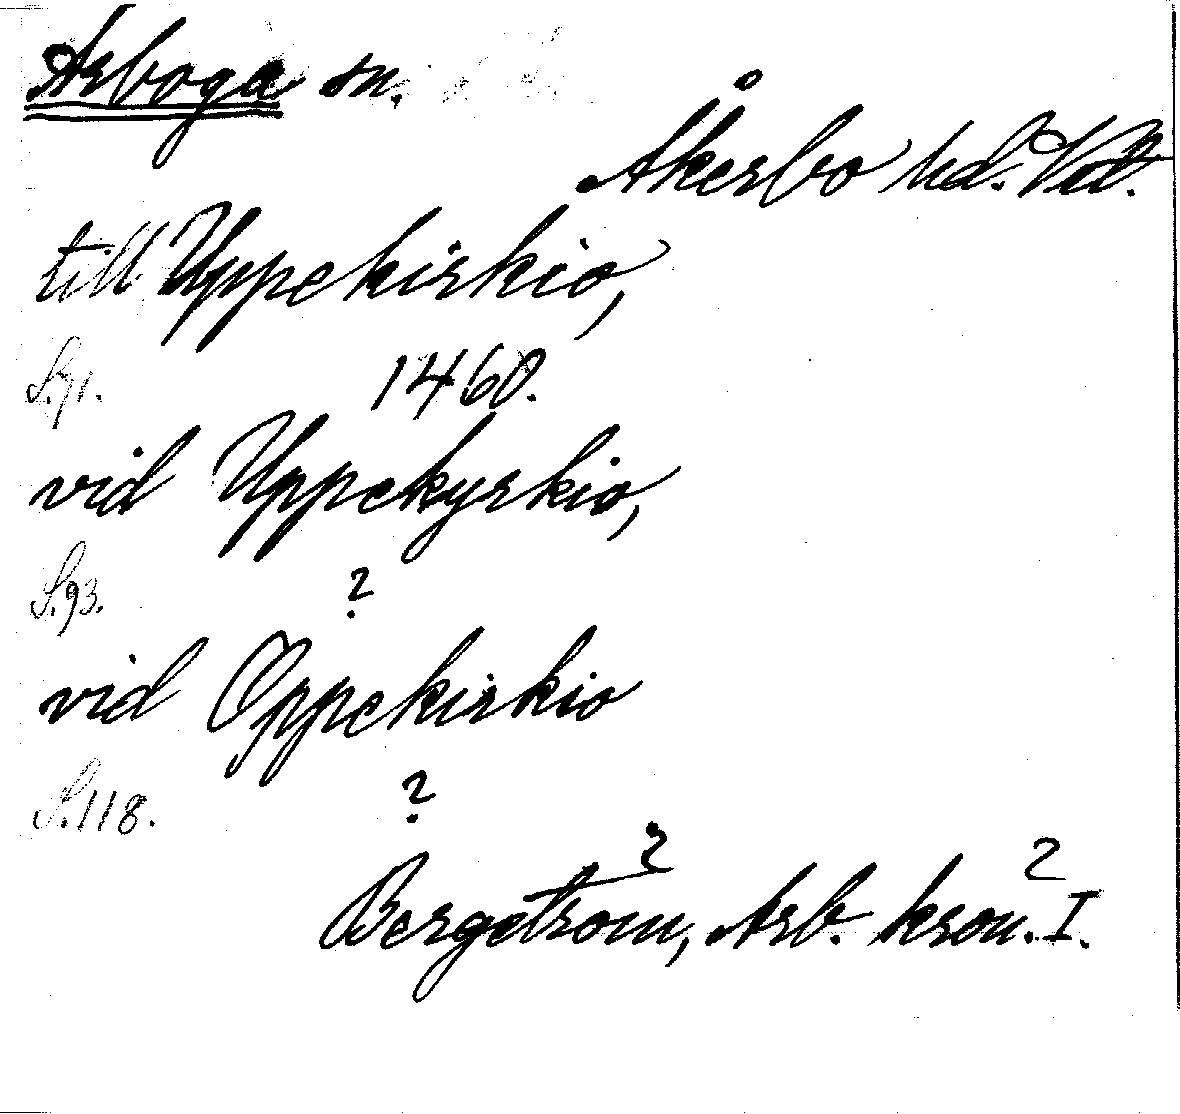 Arboga sn.
Åkerbo hd. Vstl.
till Uppekirkio,
S.71. 1460.
vid Uppekyrkio,
S.93. ?
vid Oppekirkio
S.118. ?
Bergström, Arb. krön. I.